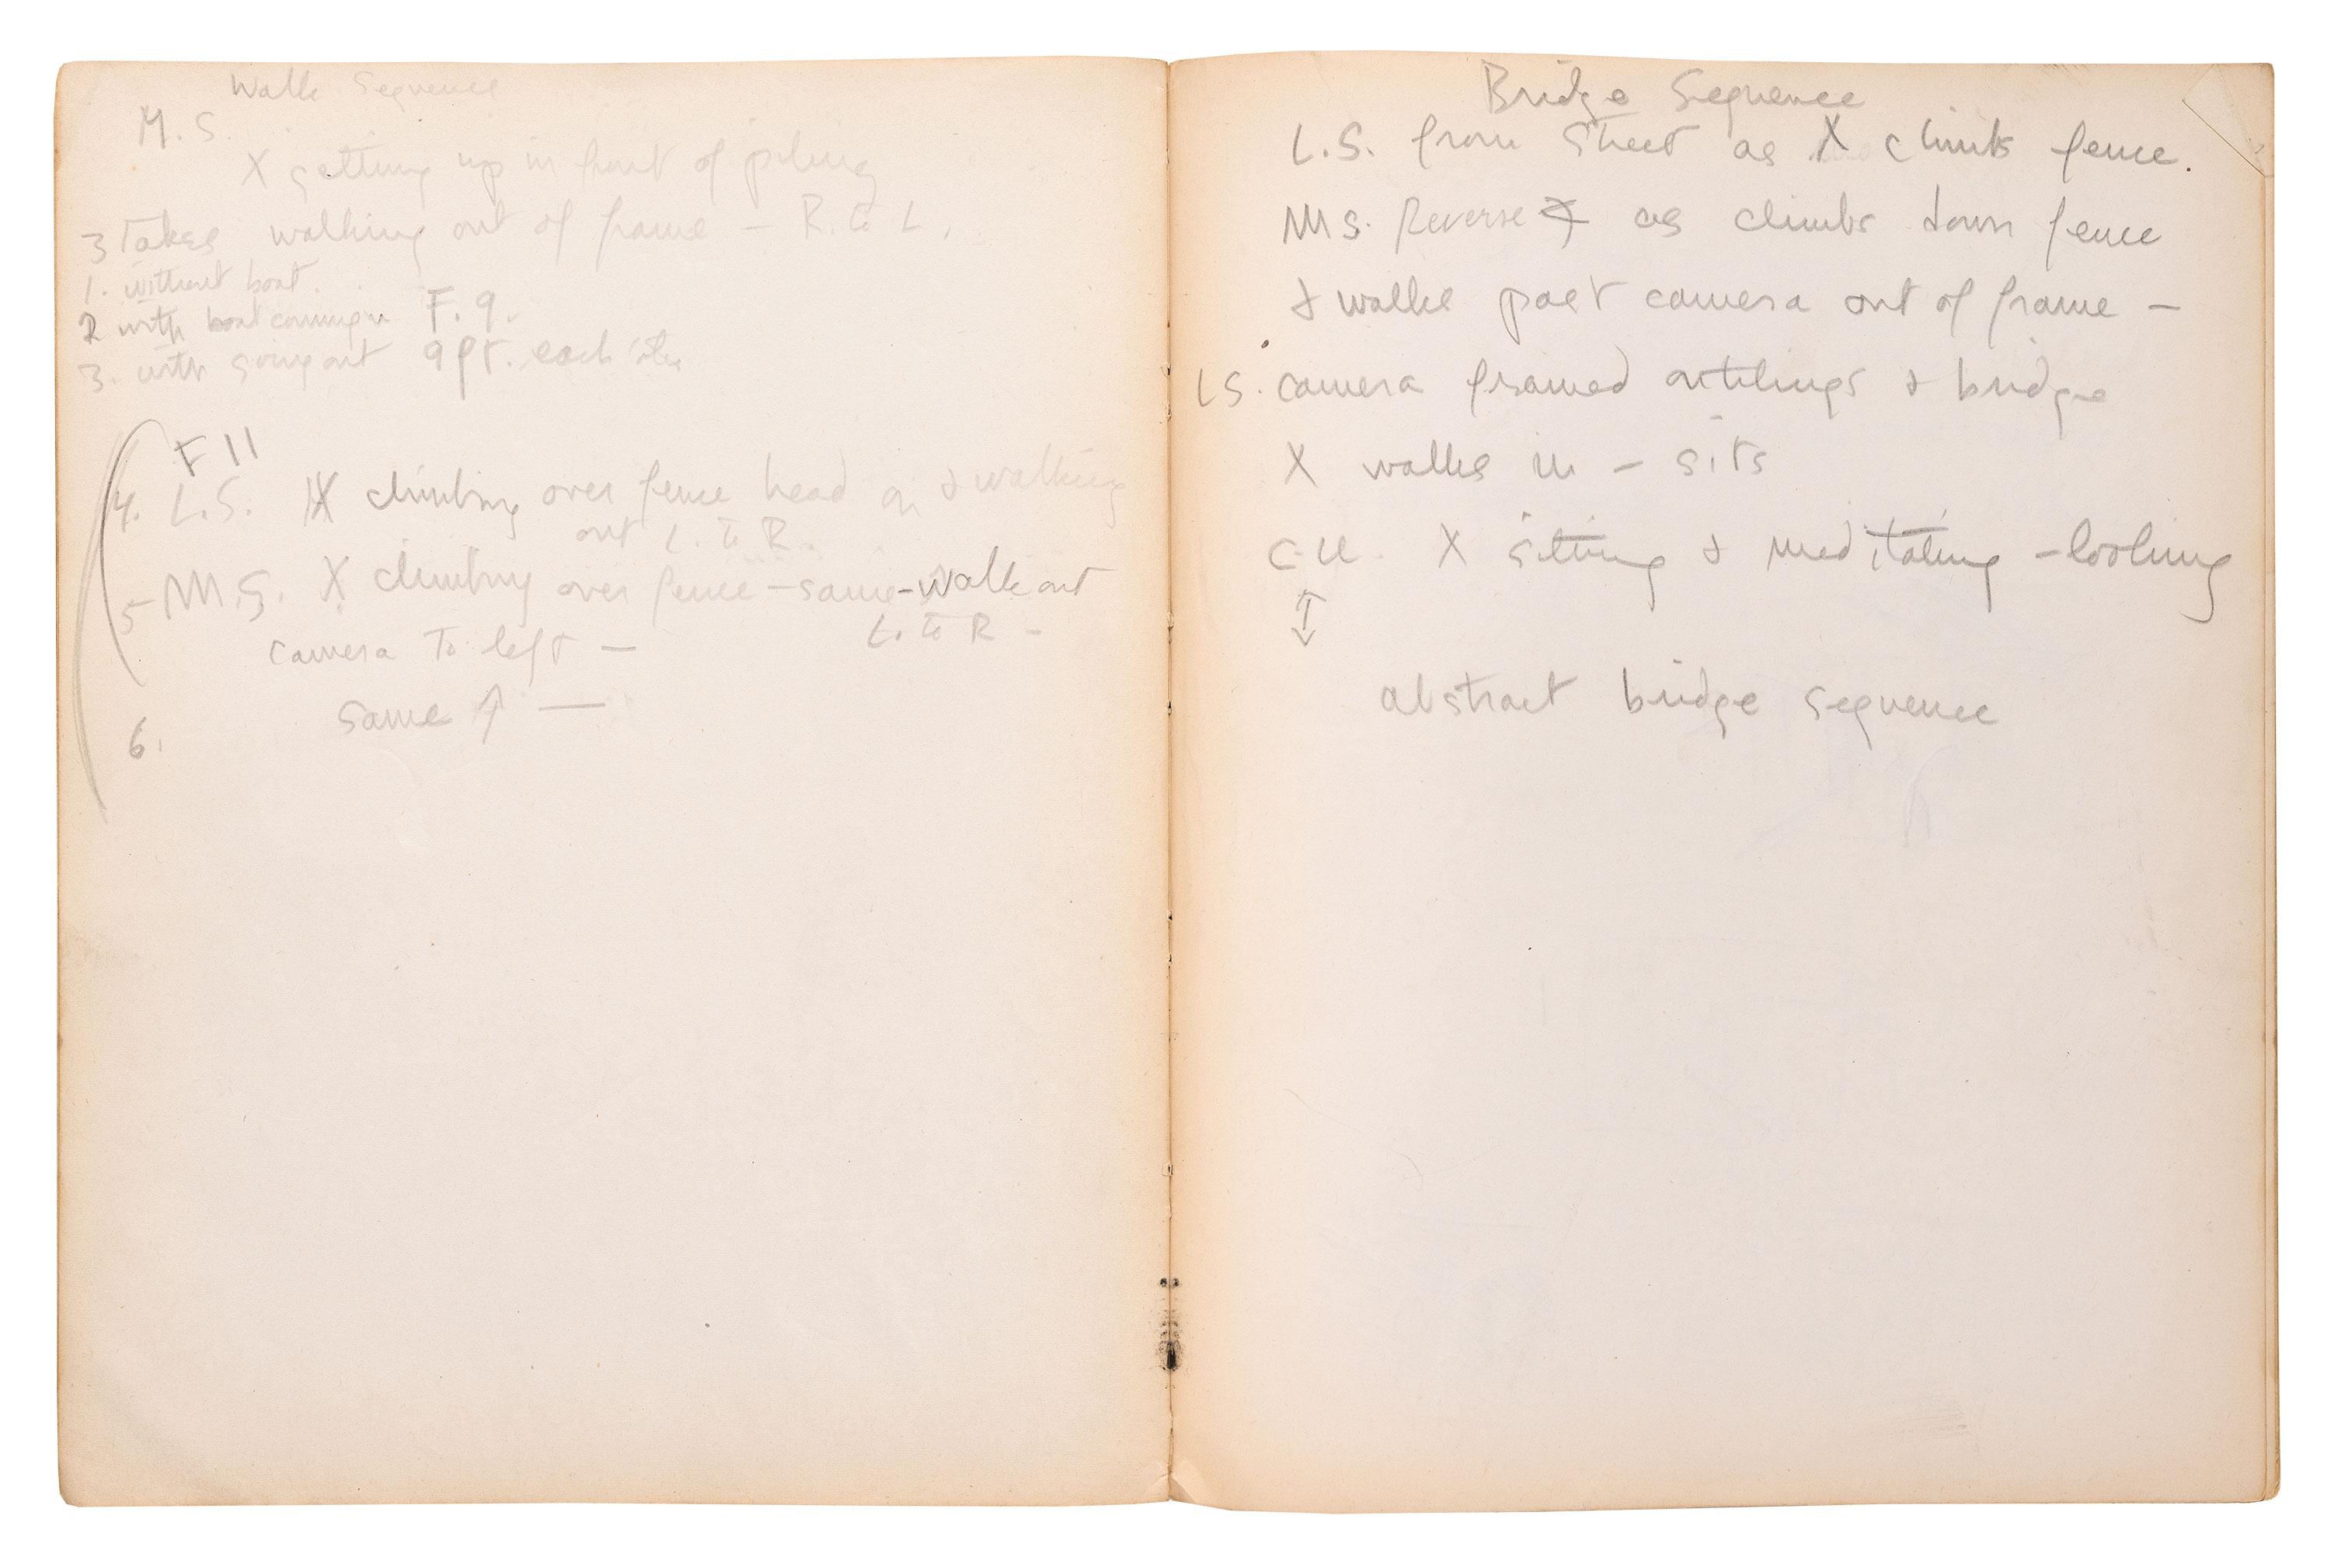 Walk Sequence
M. S.
X getting up in front of piling
3 Takes walking out of frame – R. to L.
1. without boat.
2 with boat coming in F. 9.
3. with going out 9 ft. each
F 11
4. L.S. X climbing over fence head on & walking
out L. to R.
5 – M.S. X climbing over fence – same – walk out
camera to left – L. to R –
same ↑ —
6.
Bridge Sequence
L.S. from Street as X climbs fence.
M S. Reverse as climbs down fence
& walks past camera out of frame –
LS. camera framed & bridge
X walks in – sits
C.U. X sitting & meditating – looking
↕
abstract bridge sequence